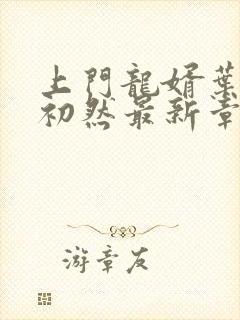 上門龍婿葉
初然最新章
游章友